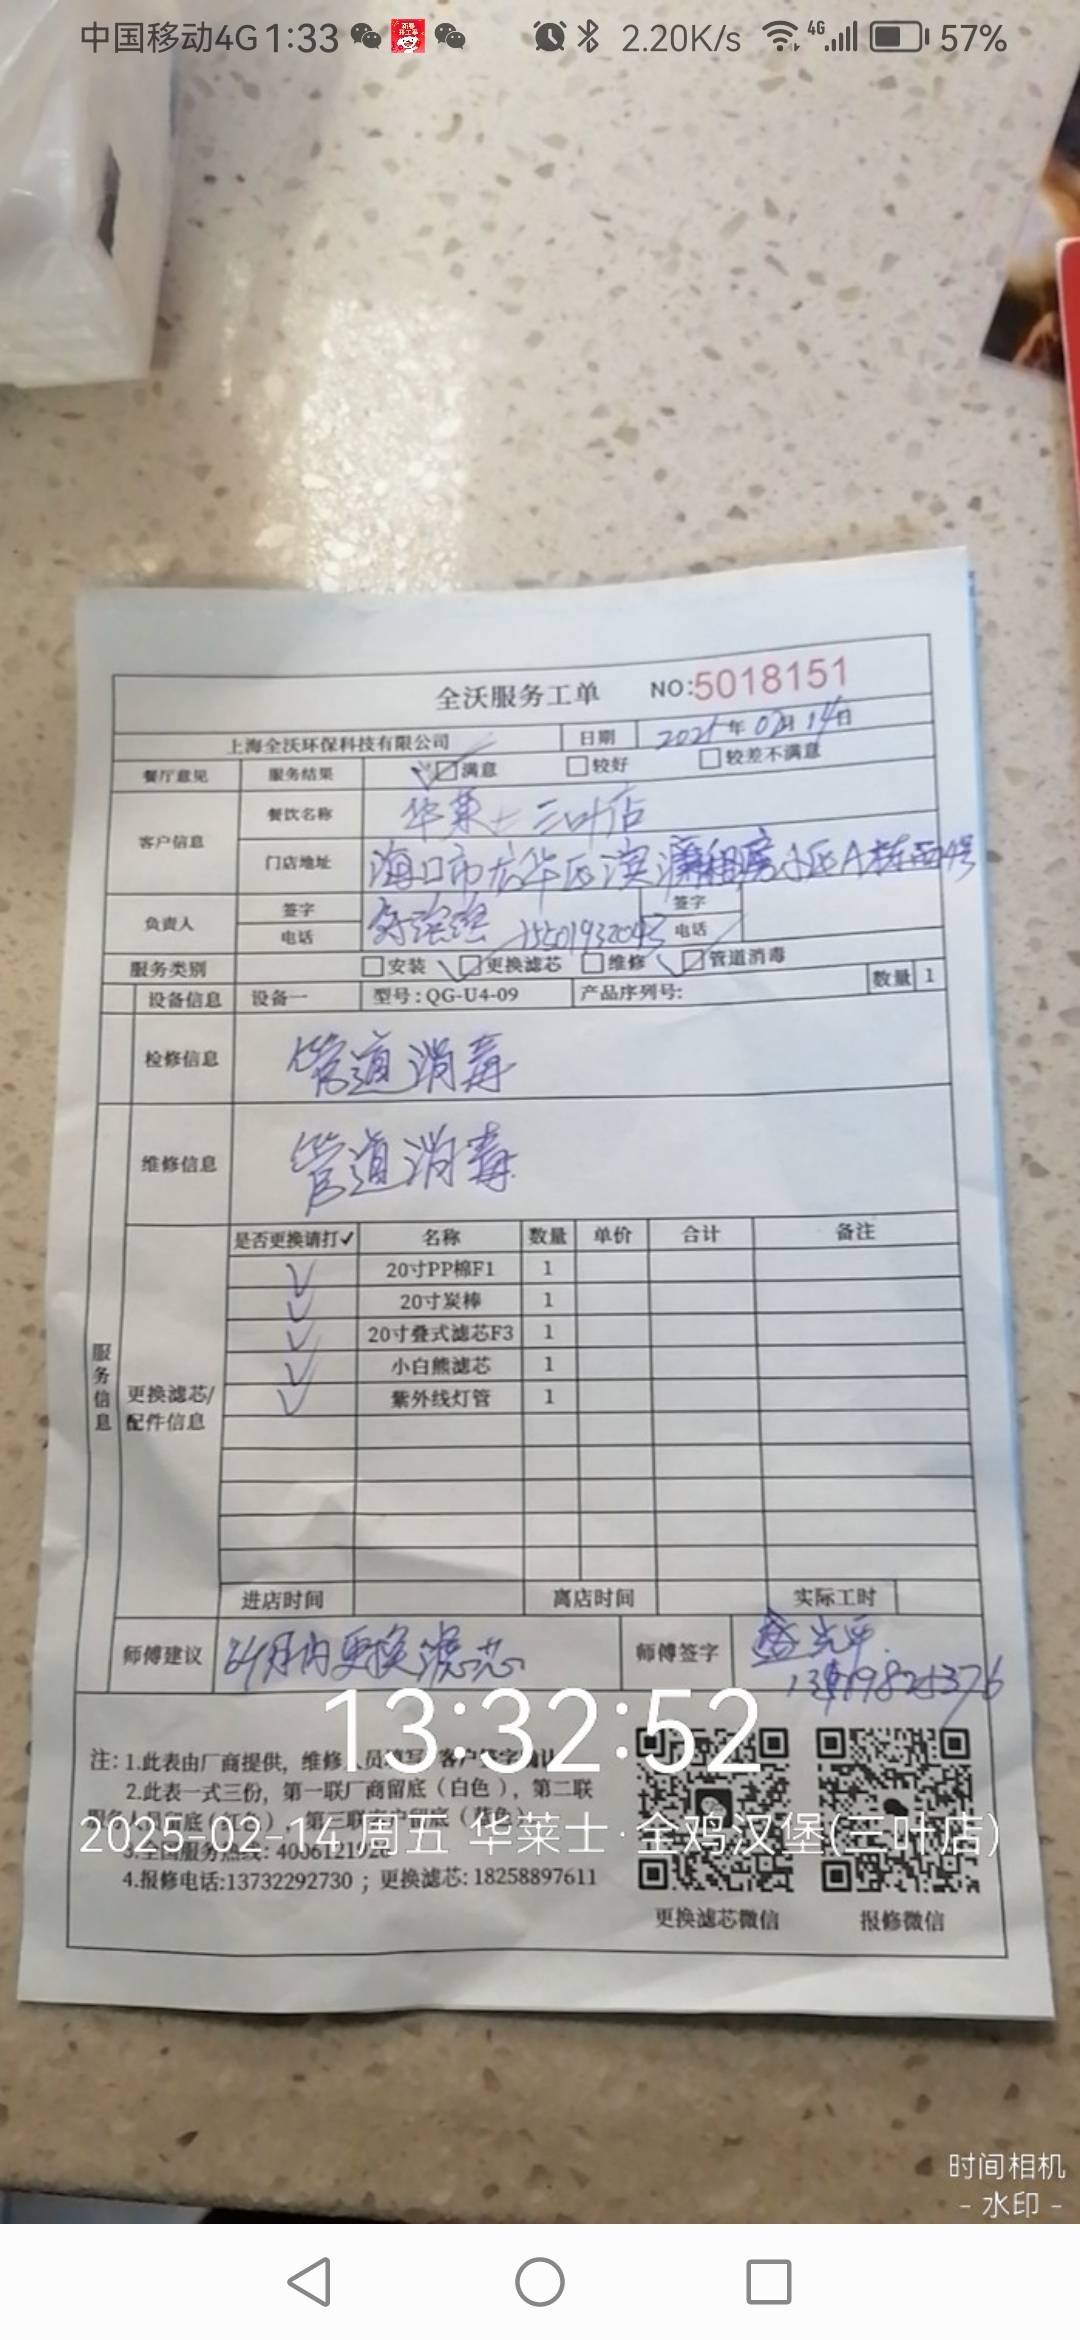 中国移动4G 1:33 2.20K/s 4G 57%
全沃服务工单 NO:5018151
上海全沃环保科技有限公司 日期 2025年02月14日
餐厅意见 服务结果 满意 较好 较差不满意
客户信息 餐饮名称 华莱士三叶店
门店地址 海口市龙华区滨濂 小区A栋 4号
负责人 签字 签字
电话 电话
服务类别 安装 更换滤芯 维修 管道消毒
设备信息 设备一 型号:QG-U4-09 产品序列号: 数量 1
检修信息 管道消毒
维修信息 管道消毒
服务信息
更换滤芯/配件信息
是否更换请打✓ 名称 数量 单价 合计 备注
✓ 20寸PP棉F1 1
✓ 20寸炭棒 1
✓ 20寸叠式滤芯F3 1
✓ 小白熊滤芯 1
✓ 紫外线灯管 1
进店时间 离店时间 实际工时
师傅建议 月内更换滤芯 师傅签字
13:32:52
注: 1.此表由厂商提供，维修人员填写，客户签字确认
2.此表一式三份，第一联厂商留底（白色），第二联
服务人员留底（红色），第三联客户留底（蓝色）
2025-02-14 周五 华莱士·全鸡汉堡(三叶店)
3.全国服务热线: 4006121926
4.报修电话:13732292730 ; 更换滤芯: 18258897611
更换滤芯微信 报修微信
时间相机
- 水印 -